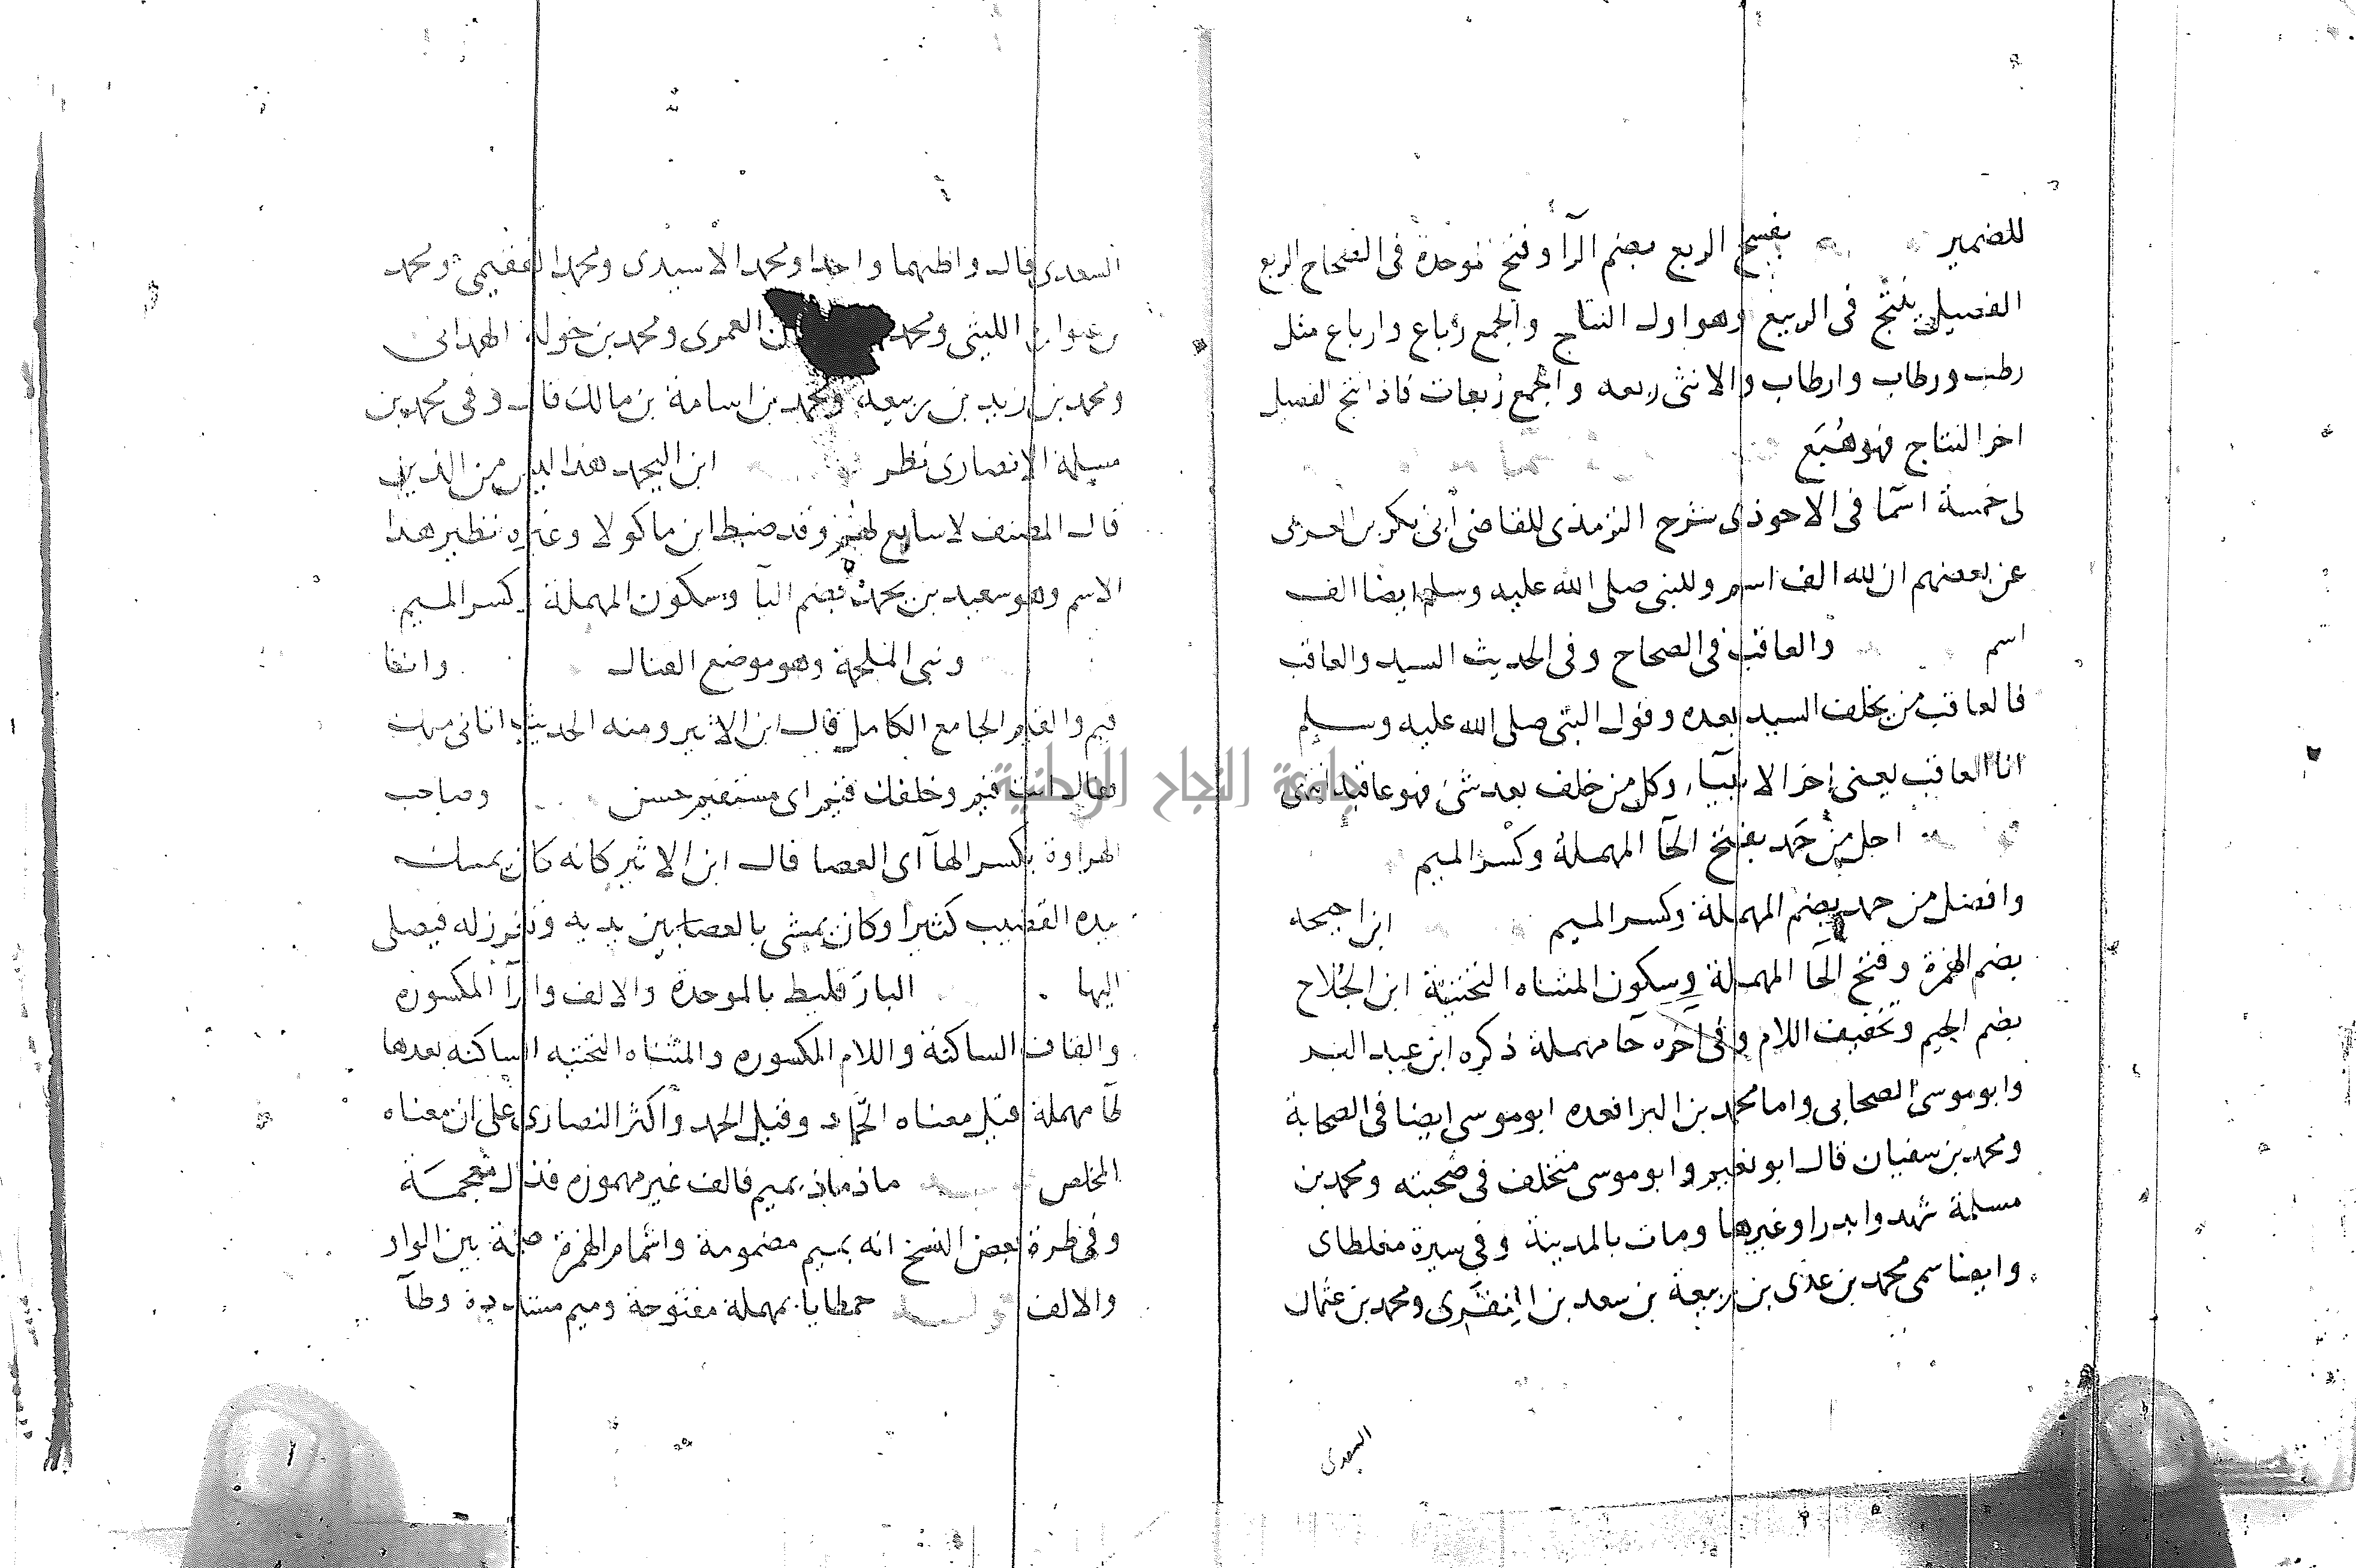 للضمير بفسح الربع بضم الرآ وفتح موحدة فى الصحاح الربع
الفصيل ينتج فى الربيع وهو اول النتاج والجمع رباع وارباع مثل
رطب ورطاب وارطاب والانثى ربعه والجمع ربعات فاذا نتج الفصيل
اخر النتاج فهو هُبَع
لى خمسة اسمآ فى الاحوذى شرح الترمذى للقاضى أبى بكر بن العربى
عن بعضهم ان لله الف اسم وللنبى صلى الله عليه وسلم ايضا الف
اسم والعاقب فى الصحاح وفى الحديث السيد والعاقب
فالعاقب من يخلف السيد بعده وقول النبى صلى الله عليه وسلم
انا العاقب يعنى اخر الانبيآ وكل من خلف بعد شئ فهو عاقبه
اجل من حَمد بفتح الحآ المهملة وكسر الميم
وافضل من حمد بضم المهملة وكسر الميم ابن احيحه
بضم الهمزة وفتح الحآ المهملة وسكون المثناه التحتية ابن الجُلاح
بضم الجيم وتخفيف اللام وفى آخره حآ مهملة ذكره ابن عبد البر
وابو موسى الصحابى واما محمد بن البرا فعده ابو موسى ايضا فى الصحابة
ومحمد بن سفيان قال ابو نعيم وابو موسى مختلف فى صحبته ومحمد بن
مسلمة شهد وابدرا وغيرها ومات بالمدينة وفى سيرة مغلطاى
وايضا سمى محمد بن عدى بن ربيعة بن سعد بن المِنقَرى ومحمد بن عثمان
السعدى
السعدى قال واظنهما واحدا ومحمد الأسيدى ومحمد الفقيمى ومحمد
الليثى ومحمد العمرى ومحمد بن خولة الهمدانى
ومحمد بن زيد بن ربيعه ومحمد بن اسامة بن مالك قال وفى محمد بن
مسلمة الانصارى نظر ابن اليحمد هذا ليس من الذين
قال المصنف لا سابع لهم وقد ضبط ابن ماكولا وغيره نظير هذا
الاسم وهو سعيد بن يحمد بضم اليآ وسكون المهملة وكسر الميم
ونبى الملحمة وهو موضع القتال وانفا
قيم والقيم الجامع الكامل قال ابن الاثير ومنه الحديث اتانى ملك
فقال انت قيم وخلقك قيم اى مستقيم حسن وصاحب
الهراوة بكسر الهآ اى العصا قال ابن الاثير كانه كان يمسك
بيده القضيب كثيرا وكان يمشى بالعصا بين يديه وتغرز له فيصلى
اليها البارَ قليط بالموحدة والالف والرآ المكسوره
والقاف الساكنة واللام المكسوره والمثناه التحتيه الساكنه بعدها
طآ مهملة قيل معناه الحَمّاد وقيل الحمد وأكثر النصارى على ان معناه
المخلص ماذ ماذ بميم فالف غير مهموزه فذال معجمَة
وفى طرة بعض النسخ انه بميم مضمومة واشمام الهمزة ضمة بين الواو
والالف حمطايا بمهملة مفتوحة وميم مشددة وطآ
جامعة النجاح الوطنية